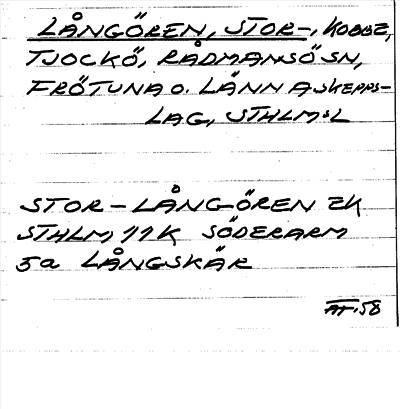 LÅNGÖREN, STOR-, KOBBE,
TJOCKÖ, RÅDMANSÖ SN,
FRÖTUNA O. LÄNNA SKEPPS-
LAG, STHLM:S L
STOR-LÅNGÖREN EK
STHLM 11K SÖDERARM
5a LÅNGSKÄR
AF. 58